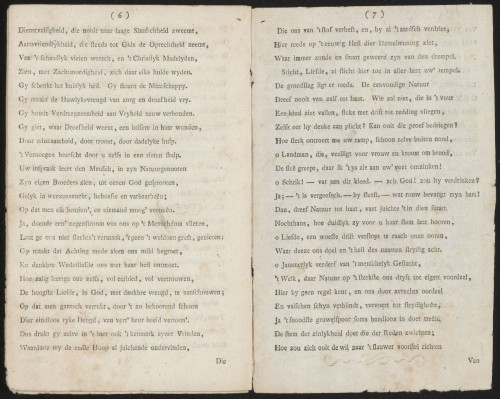 ( 6 )
Dienstvaardigheid, die nooit naar laage Slaafschheid zweeme,
Aanvriendlykheid, die steeds tot Gids de Oprechtheid neeme,
Van 't schraaflyk vleien wersch, en 't Christlyk Medelyden,
Zien, met Zachtmoedigheid, zich daar elks hulde wyden.
Gy schenkt het huislyk heil. Gy steunt de Maatschappy.
Gy maakt de Huwlyksvreugd van zorg en droefheid vry.
Gy houdt Verdraagzaamheid aan Vryheid naauw verbonden.
Gy giet, waar Droefheid weent, een balsem in haar wonden,
Door achtzaamheid, door troost, door dadelyke hulp.
't Vernoegen heerscht door u zelfs in een rieten stulp.
Uw inspraak leert den Mensch, in zyn Natuurgenooten
Zyn eigen Broeders zien, uit eenen God gesprooten,
Gelyk in weezensaardt, behoefte en vatbaarheên;
Op dat men elk bemin', en niemand moog' vertreên.
Ja, doende een' zegenstroom van ons op 't Menschdom vlieten,
Laat ge ons niet slechts 't verrukt, 't geen 't weldoen geeft, genieten:
Op maakt dat Achting mede alom ons mild begroet,
En dankbre Wederliefde ons met haar heil ontmoet.
Hoe zalig leerige ons zelfs, vol eerbied, vol vertrouwen,
De hoogste Liefde, in God, met dankbre vreugd, te aanschouwen;
Op dat men gansch verrukt, door 't zo bekoorend schoon
Dier eindloos ryke Deugd, van verr' heur beeld vertoon'.
Dus drukt gy zelve in 't hart ook 't kenmerk zyner Vrinden,
Waardoor wy de eelste Hoop al juichende ondervinden,
Die
( 7 )
Die ons van 't stof verheft, en, by al 't aardsch verdriet,
Hier reeds op 't eeuwig Heil dier Hemelwoning ziet,
Waar immer zonde en smart geweerd zyn van den drempel.
Sticht, Liefde, ai sticht hier toe in aller hart uw' tempel.
De grondslag ligt er reeds. De eenvoudige Natuur
Dreef nooit van zelf tot haat. Wie zal niet, die in 't vuur
Een kind ziet vallen, fluks met drift tot redding vliegen,
Zelfs eer hy denke aan plicht? Kan ook die proef bedriegen?
Hoe sterk ontroert me uw ramp, schoon zelve buiten nood,
o Landman, die, veeiligt voor vrouw en kroost om brood,
De slek greept, daar ik 't ys zie aan uw' voet ontzinken!
o Schrik! — vat aan dit kleed. — ach God! zou hy verdrinken?
Ja; — 't is vergeefsch, — by sterft. — wat muw bevangt myn hart!
Dan, dreef Natuur tot haat, vast juichte 't in dien smart.
Nochthans, hoe duidlyk zy voor u haar stem laat hooren,
o Liefde, een woeste drift verstopt te raasch onze ooren,
Waar deeze ons doel en 't heil des naasten strydig acht.
o Jammerlyk verderf van 't menschelyk Geslacht,
't Welk, daar Natuur op 't sterkste ons dryft tot eigen voordeel,
Hier by geen regel kent, en ons door averechts oordeel
En valschen schyn verblindt, vervoert tot strydigheên,
Ja 't snoodste gruwelspoor soms bandloos in doet treên;
De stem der zinlykheid doet die der Reden zwichten;
Hoe zou zich ook de wil naar 't flauwer voorstel richten
Van